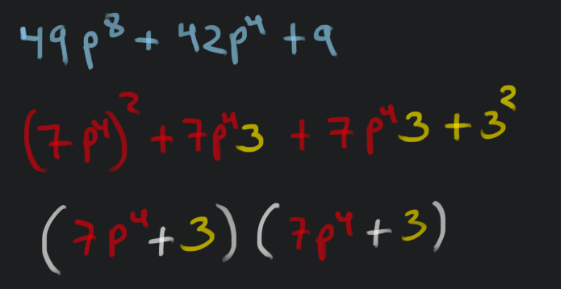 49p⁸ + 42p⁴ + 9
(7p⁴)² + 7p⁴3 + 7p⁴3 + 3²
(7p⁴ + 3)(7p⁴ + 3)